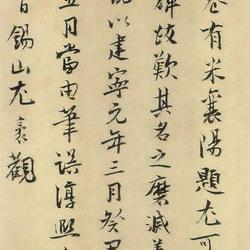 卷有米襄陽題尤可
碑故歎其名之磨滅
既以建寧元年三月癸丑
五月當由筆誤淳熙
日錫山尤袤觀